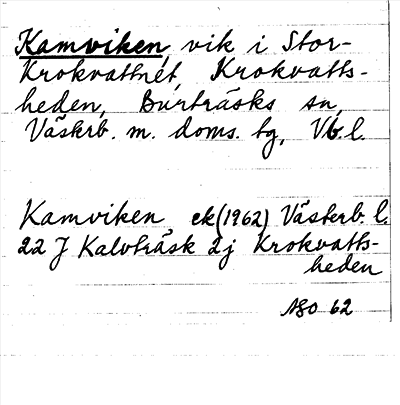 Kamviken, vik i Stor-
Krokvattnet, Krokvatts-
heden, Burträsks sn,
Västerb. m. doms. tg, Vb. l.
Kamviken ek (1962) Västerb. l.
22 J Kalvträsk 2j Krokvatts-
heden
NSO 62